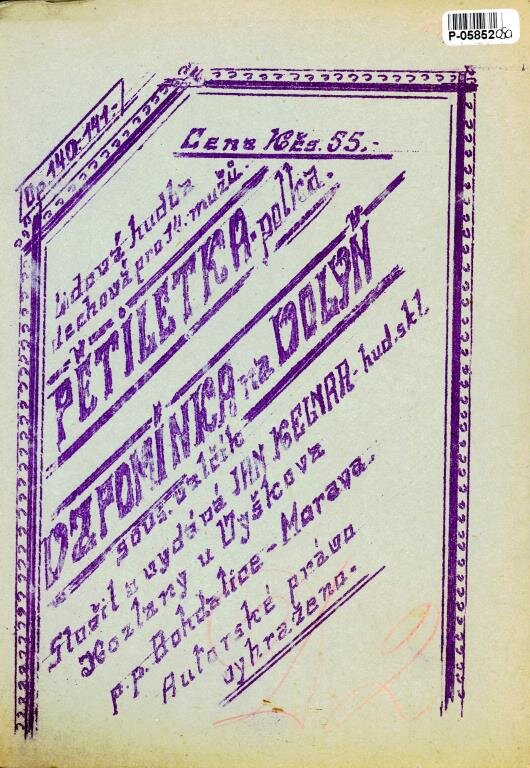 P-05852
Op. 140-141.-
Cena Kčs. 55.-
Lidová hudba
dechová pro 14. mužů.
PĚTILETKA-polka.
VZPOMÍNKA na VOLYŇ
sous. valčík
Složil a vydává JAN KELNAR-hud.skl.
Kozlany u Vyškova
P.P. Bohdalice-Morava.
Autorské práva
vyhraženo.